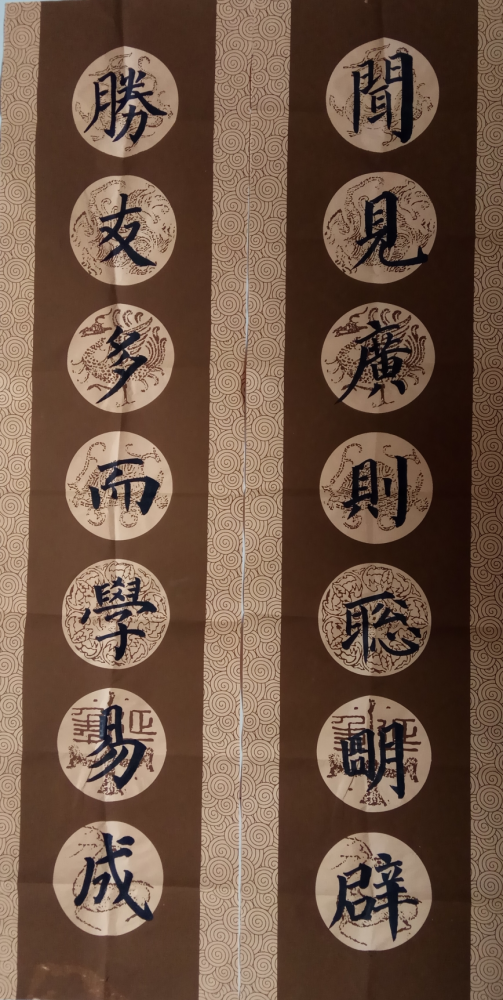 聞見廣則聡明辟
勝友多而學易成